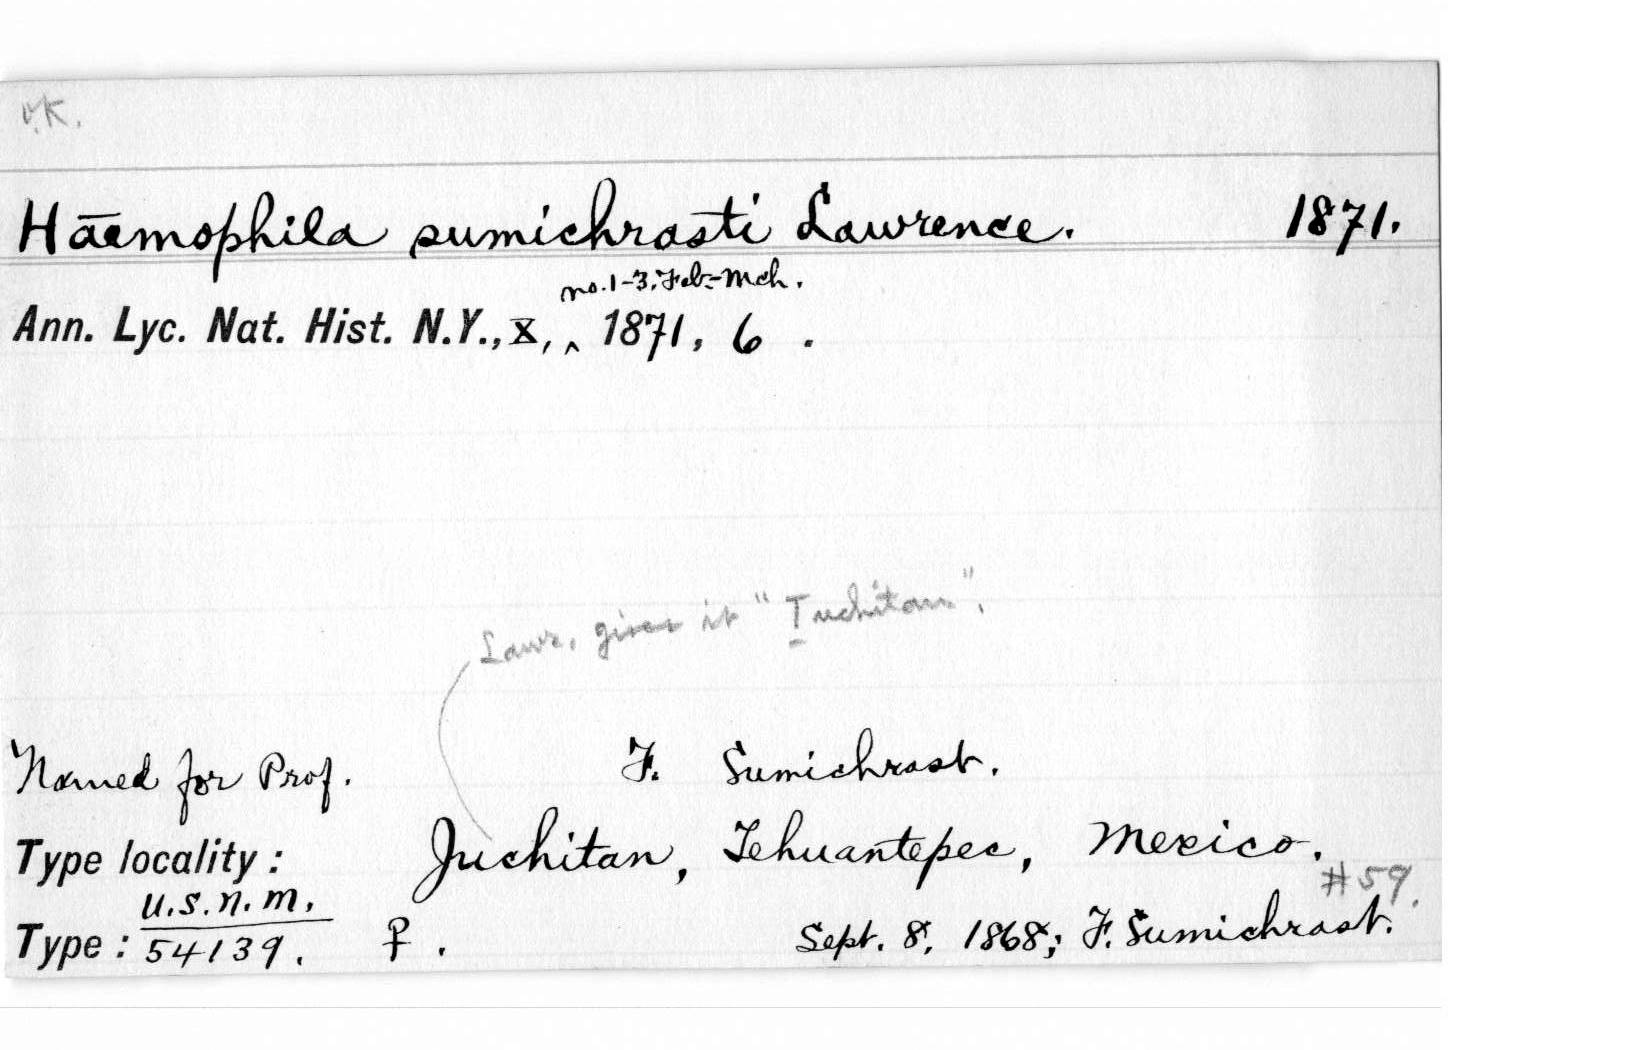 O.K.
Haemophila sumichrasti Lawrence. 1871.
no. 1-3, Feb.-Mch.
Ann. Lyc. Nat. Hist. N.Y., X, ^ 1871, 6 .
Lawr. gives it "Tuchitan".
Named for Prof. F. Sumichrast.
Type locality: Juchitan, Tehuantepec, Mexico.
#59.
U.S.N.M.
Type: 54139. ♀. Sept. 8, 1868; F. Sumichrast.